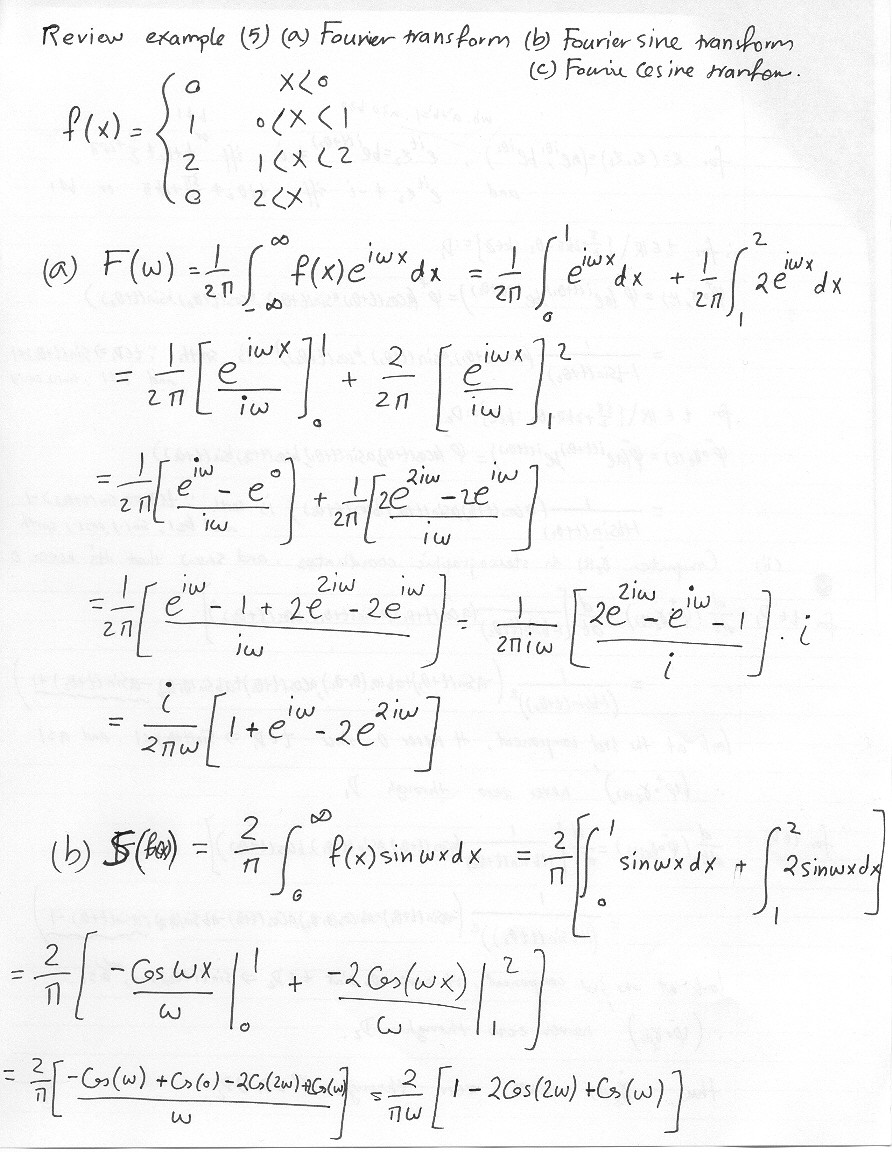 Review example (5) (a) Fourier transform (b) Fourier sine transform
(c) Fourie Cosine tranfom.
f(x) = { 0 x<0
1 0<x<1
2 1<x<2
0 2<x
(a) F(ω) = 1/2π ∫_{-∞}^{∞} f(x)e^{iωx} dx = 1/2π ∫_0^1 e^{iωx} dx + 1/2π ∫_1^2 2e^{iωx} dx
= 1/2π [e^{iωx}/iω]_0^1 + 2/2π [e^{iωx}/iω]_1^2
= 1/2π [(e^{iω} - e^0)/iω] + 1/2π [(2e^{2iω} - 2e^{iω})/iω]
= 1/2π [(e^{iω} - 1 + 2e^{2iω} - 2e^{iω})/iω] = 1/2πiω [(2e^{2iω} - e^{iω} - 1)/i] · i
= i/2πω [1 + e^{iω} - 2e^{2iω}]
(b) = 2/π ∫_0^∞ f(x) sin ωx dx = 2/π [∫_0^1 sin ωx dx + ∫_1^2 2 sin ωx dx]
= 2/π [-Cos ωx/ω |_0^1 + -2 Cos(ωx)/ω |_1^2]
= 2/π [(-Cos(ω) + Cos(0) - 2Cos(2ω) + 2Cos(ω))/ω] = 2/πω [1 - 2Cos(2ω) + Cos(ω)]